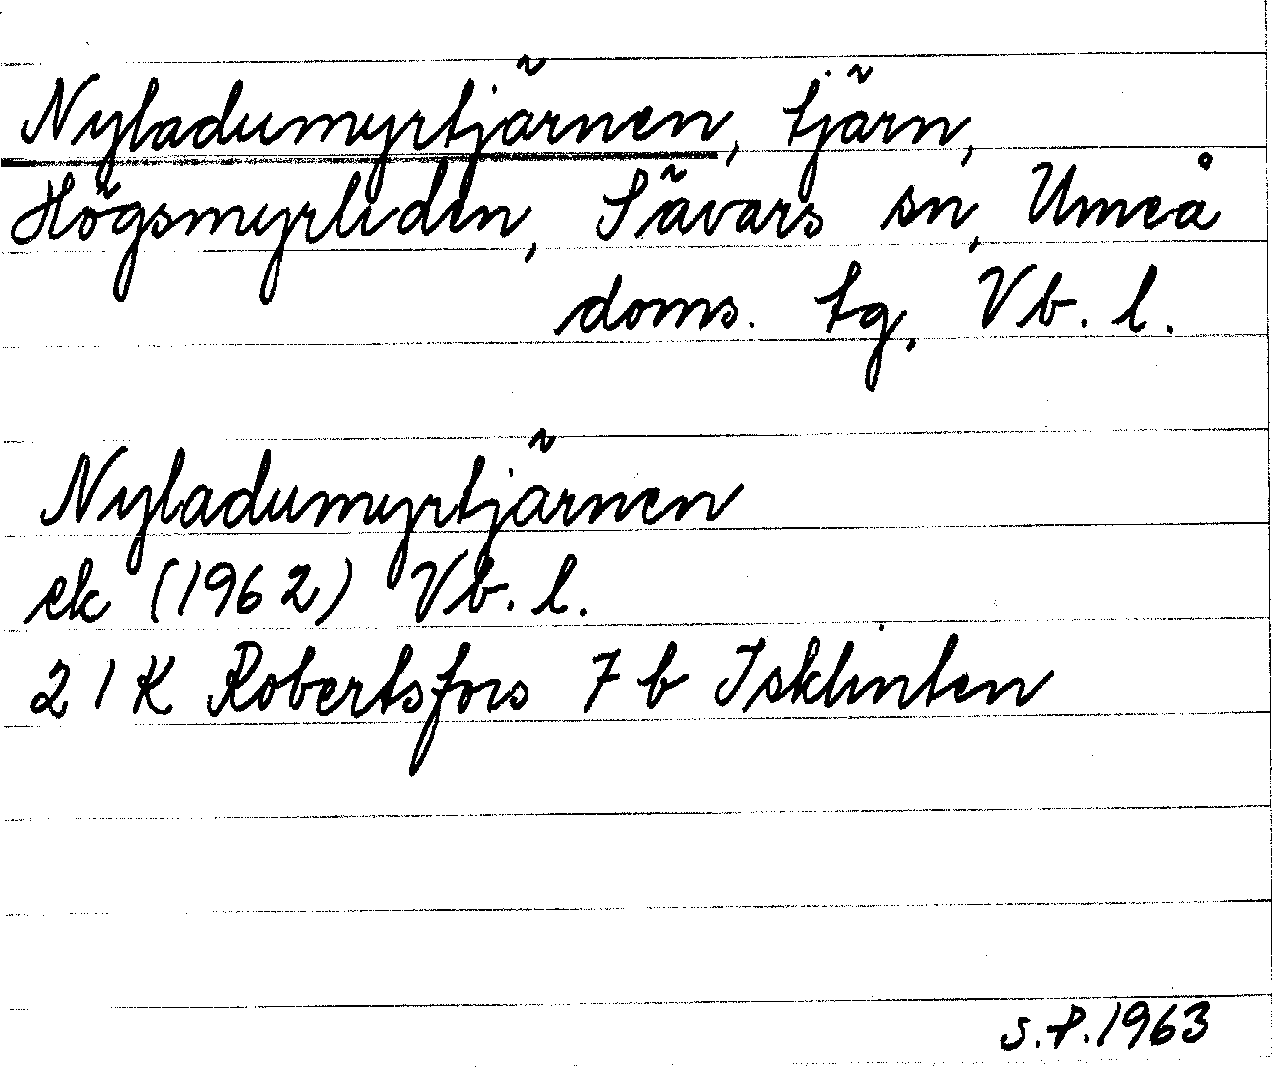 Nyladumyrtjärnen, tjärn,
Högsmyrliden, Sävars sn, Umeå
doms. tg, Vb. l.
Nyladumyrtjärnen
ek (1962) Vb. l.
21K Robertsfors 7b Isklinten
S.P.1963